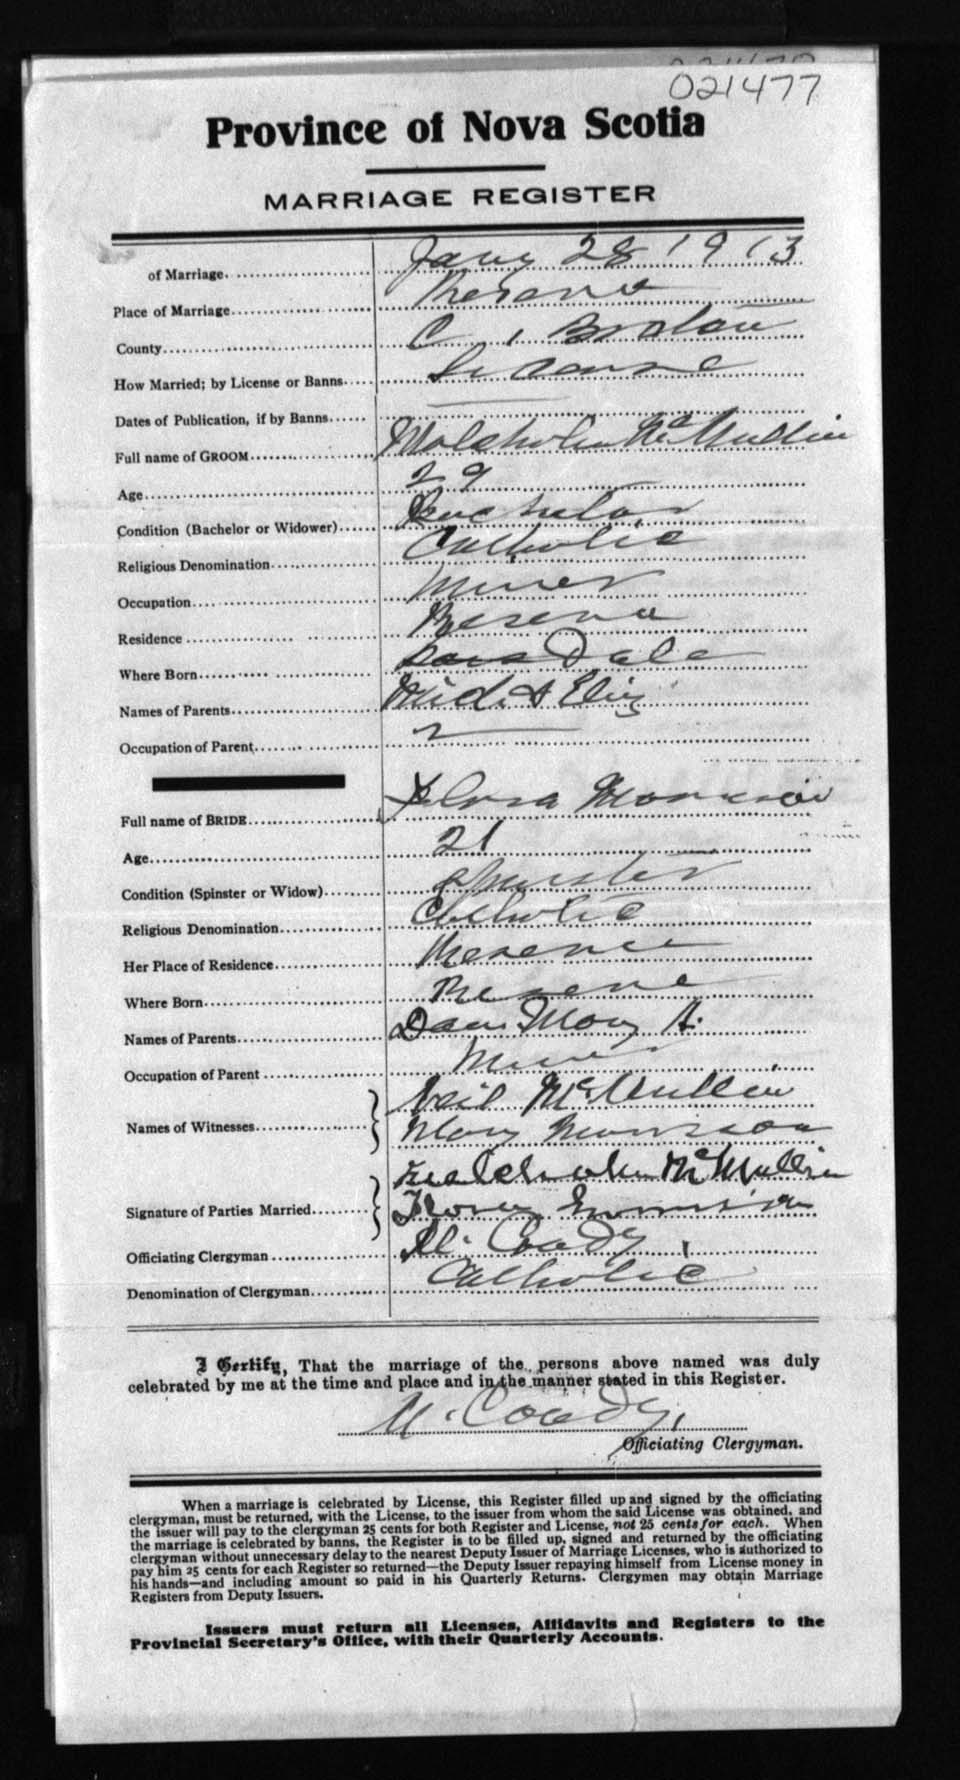 021477
Province of Nova Scotia
MARRIAGE REGISTER
of Marriage Jany 28 1913
Place of Marriage Reserve
County C. Breton
How Married; by License or Banns License
Dates of Publication, if by Banns
Full name of GROOM McMullin
Age 29
Condition (Bachelor or Widower) Bachelor
Religious Denomination Catholic
Occupation Miner
Residence Reserve
Where Born Dale
Names of Parents & Eliz
Occupation of Parent
Full name of BRIDE Morrison
Age 21
Condition (Spinster or Widow) Spinster
Religious Denomination Catholic
Her Place of Residence Reserve
Where Born Reserve
Names of Parents Dan Mary A.
Occupation of Parent Miner
Names of Witnesses Neil McMullin
Mary Morrison
Signature of Parties Married McMullin
Morrison
Officiating Clergyman M. Coady
Denomination of Clergyman Catholic
I Certify, That the marriage of the persons above named was duly
celebrated by me at the time and place and in the manner stated in this Register.
M. Coady,
Officiating Clergyman.
When a marriage is celebrated by License, this Register filled up and signed by the officiating
clergyman, must be returned, with the License, to the issuer from whom the said License was obtained, and
the issuer will pay to the clergyman 25 cents for both Register and License, not 25 cents for each. When
the marriage is celebrated by banns, the Register is to be filled up, signed and returned by the officiating
clergyman without unnecessary delay to the nearest Deputy Issuer of Marriage Licenses, who is authorized to
pay him 25 cents for each Register so returned—the Deputy Issuer repaying himself from License money in
his hands—and including amount so paid in his Quarterly Returns. Clergymen may obtain Marriage
Registers from Deputy Issuers.
Issuers must return all Licenses, Affidavits and Registers to the
Provincial Secretary's Office, with their Quarterly Accounts.